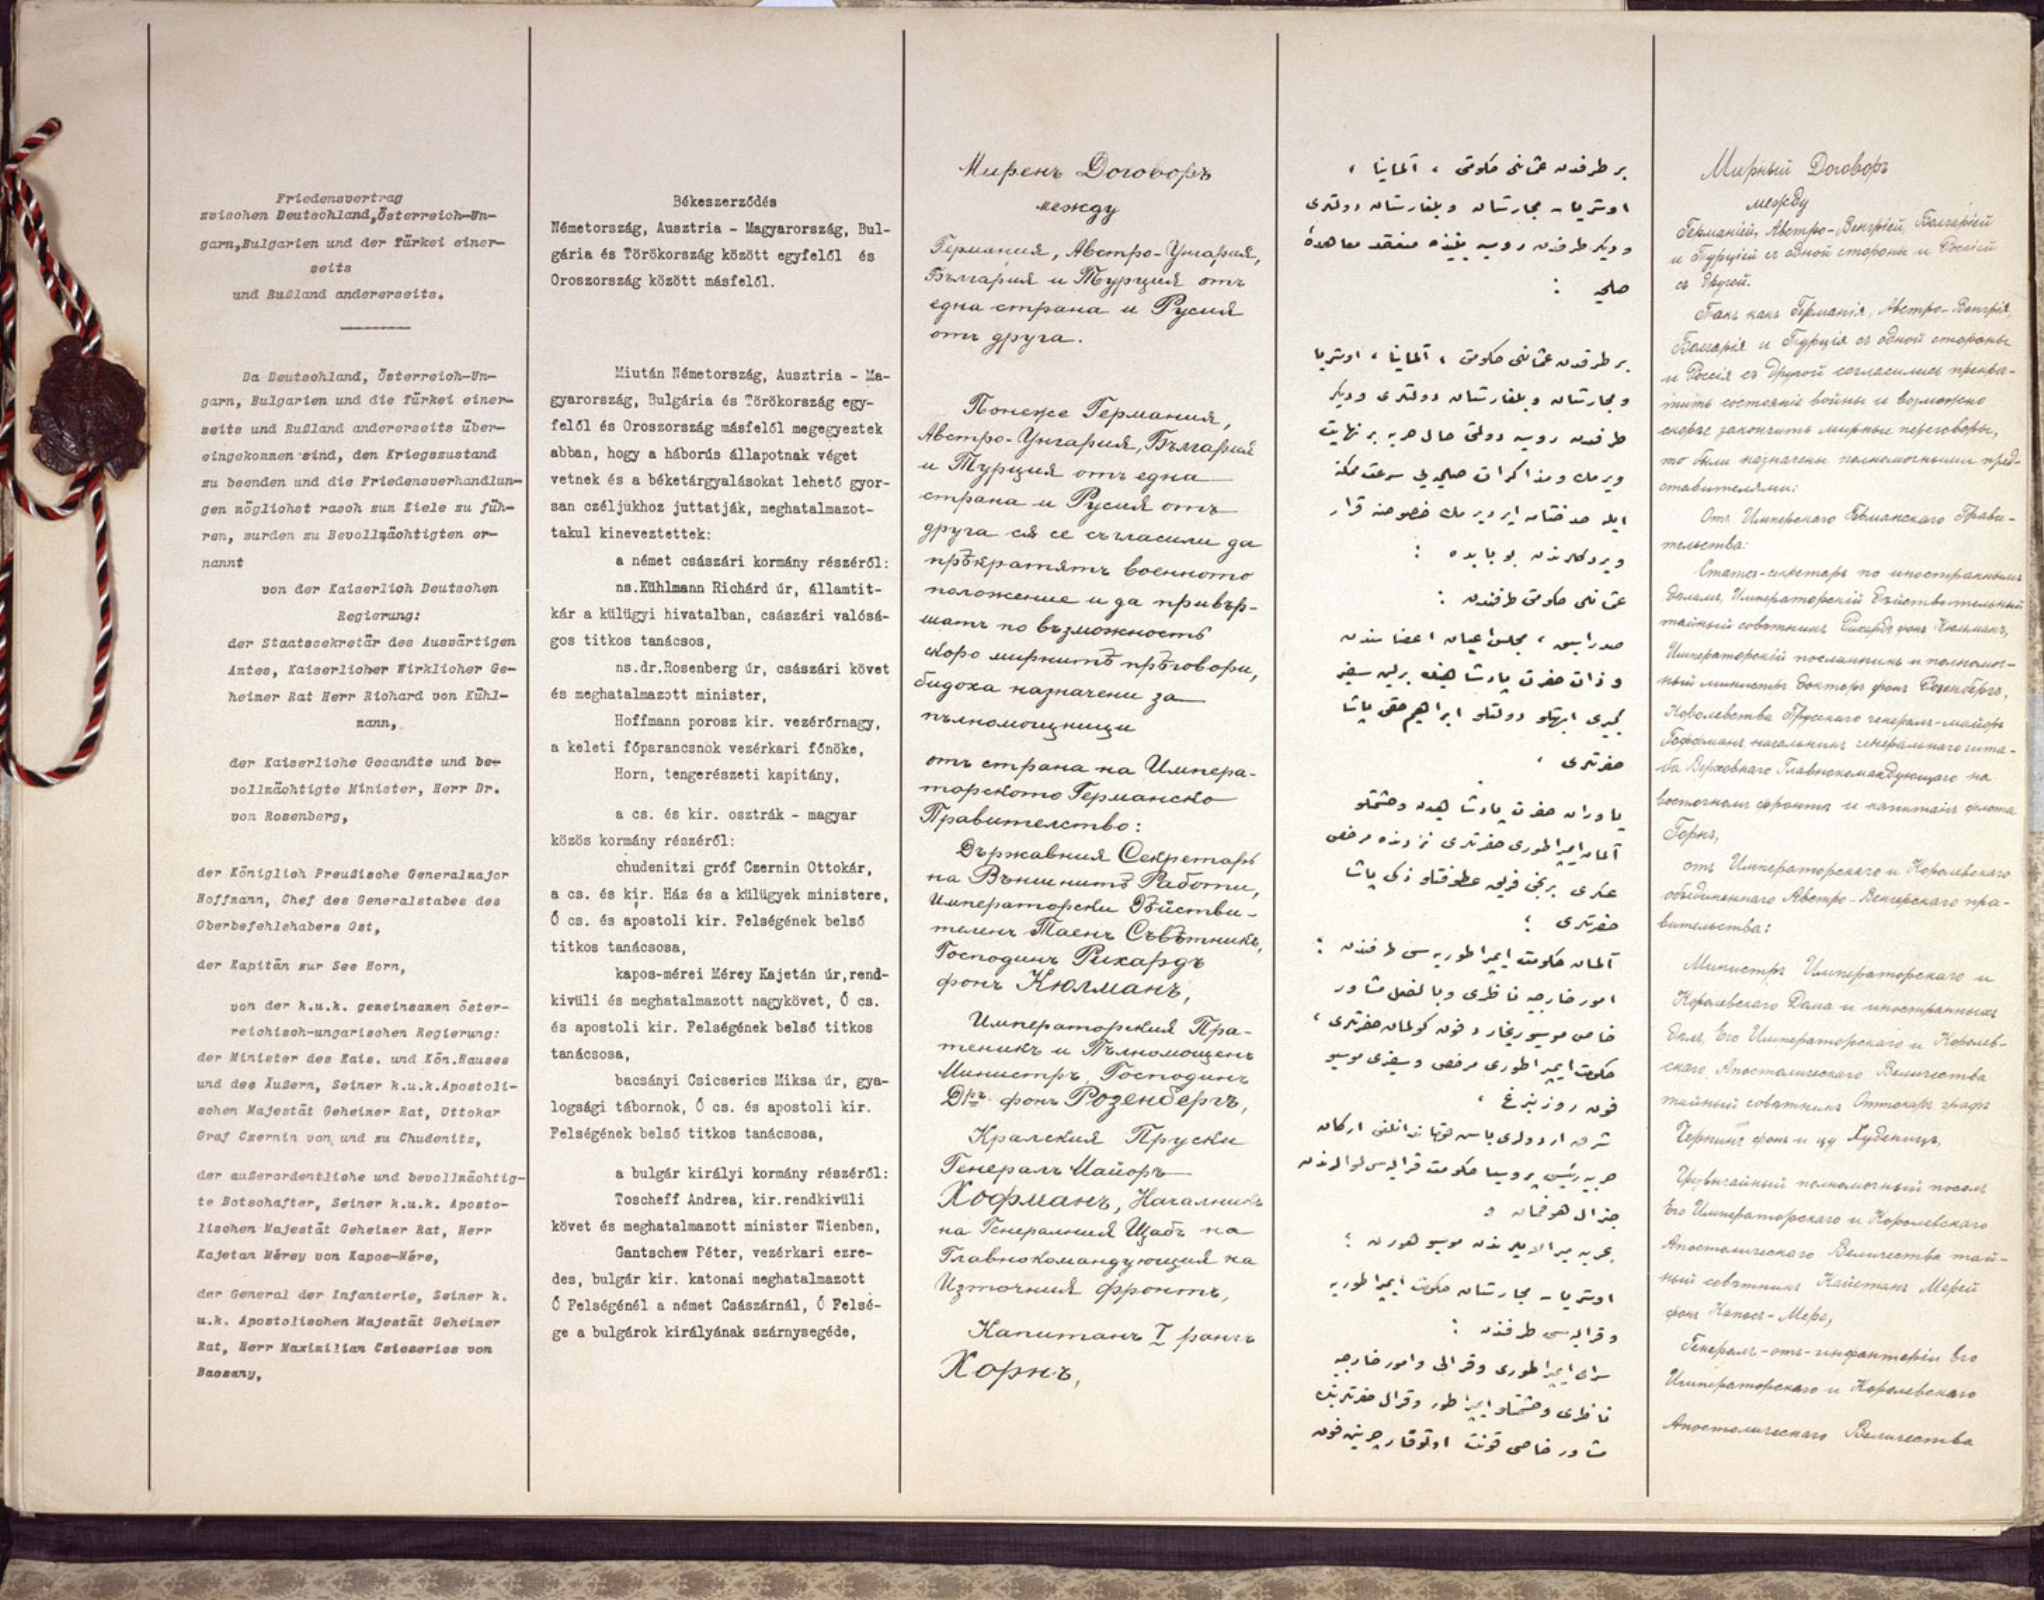 Friedensvertrag
zwischen Deutschland,Österreich-Un-
garn,Bulgarien und der Türkei einer-
seits
und Rußland andererseits.
Da Deutschland, Österreich-Un-
garn, Bulgarien und die Türkei einer-
seits und Rußland andererseits über-
eingekommen sind, den Kriegszustand
zu beenden und die Friedensverhandlun-
gen möglichst rasch zum Ziele zu füh-
ren, wurden zu Bevollmächtigten er-
nannt
von der Kaiserlich Deutschen
Regierung:
der Staatssekretär des Auswärtigen
Amtes, Kaiserlicher Wirklicher Ge-
heimer Rat Herr Richard von Kühl-
mann,
der Kaiserliche Gesandte und be-
vollmächtigte Minister, Herr Dr.
von Rosenberg,
der Königlich Preußische Generalmajor
Hoffmann, Chef des Generalstabes des
Oberbefehlshabers Ost,
der Kapitän zur See Horn,
von der k.u.k. gemeinsamen öster-
reichisch-ungarischen Regierung:
der Minister des Kais. und Kön.Hauses
und des Äußern, Seiner k.u.k.Apostoli-
schen Majestät Geheimer Rat, Ottokar
Graf Czernin von und zu Chudenitz,
der außerordentliche und bevollmächtig-
te Botschafter, Seiner k.u.k. Aposto-
lischen Majestät Geheimer Rat, Herr
Kajetan Mérey von Kapos-Mére,
der General der Infanterie, Seiner k.
u.k. Apostolischen Majestät Geheimer
Rat, Herr Maximilian Csicserics von
Bacsany,
Békeszerződés
Németország, Ausztria - Magyarország, Bul-
gária és Törökország között egyfelől és
Oroszország között másfelől.
Miután Németország, Ausztria - Ma-
gyarország, Bulgária és Törökország egy-
felől és Oroszország másfelől megegyeztek
abban, hogy a háborús állapotnak véget
vetnek és a béketárgyalásokat lehető gyor-
san czéljukhoz juttatják, meghatalmazot-
takul kineveztettek:
a német császári kormány részéről:
ns.Kühlmann Richárd úr, államtit-
kár a külügyi hivatalban, császári valósá-
gos titkos tanácsos,
ns.dr.Rosenberg úr, császári követ
és meghatalmazott minister,
Hoffmann porosz kir. vezérőrnagy,
a keleti főparancsnok vezérkari főnöke,
Horn, tengerészeti kapitány,
a cs. és kir. osztrák - magyar
közös kormány részéről:
chudenitzi gróf Czernin Ottokár,
a cs. és kir. Ház és a külügyek ministere,
Ő cs. és apostoli kir. Felségének belső
titkos tanácsosa,
kapos-mérei Mérey Kajetán úr,rend-
kivüli és meghatalmazott nagykövet, Ő cs.
és apostoli kir. Felségének belső titkos
tanácsosa,
bacsányi Csicserics Miksa úr, gya-
logsági tábornok, Ő cs. és apostoli kir.
Felségének belső titkos tanácsosa,
a bulgár királyi kormány részéről:
Toscheff Andrea, kir.rendkivüli
követ és meghatalmazott minister Wienben,
Gantschew Péter, vezérkari ezre-
des, bulgár kir. katonai meghatalmazott
Ő Felségénél a német Császárnál, Ő Felsé-
ge a bulgárok királyának szárnysegéde,
Миренъ Договоръ
между
Германия, Австро-Унгария,
България и Турция отъ
една страна и Русия
отъ друга.
Понеже Германия,
Австро-Унгария, България
и Турция отъ една
страна и Русия отъ
друга ся се съгласили да
прѣкратятъ военното
положение и да привър-
шатъ по възможность
скоро мирнитѣ прѣговори,
бидоха назначени за
пълномощници
отъ страна на Импера-
торското Германско
Правителство:
Държавния Секретарь
на Външнитѣ Работи,
Императорски Дѣйстви-
теленъ Таенъ Съвѣтникъ,
Господинъ Рихардъ
фонъ Кюлманъ,
Императорския Пра-
теникъ и Пълномощенъ
Министръ, Господинъ
Д-ръ фонъ Розенбергъ,
Кралския Пруски
Генералъ Майоръ
Хофманъ, Началникъ
на Генералния Щабъ на
Главнокомандующия на
Източния фронтъ,
Капитанъ I рангъ
Хорнъ,
بر طرفدن عثمانلی حکومتی ، آلمانیا ،
اوستریا - مجارستان و بلغارستان دولتلری
و دیکر طرفدن روسیه بیننده منعقد معاهدهٔ
صلحیه :
بر طرفدن عثمانلی حکومتی ، آلمانیا ، اوستریا
و مجارستان و بلغارستان دولتلری و دیکر
طرفدن روسیه دولتی حال حربه بر نهایت
ویرمك و مذاکرات صلحیه یی سرعت ممکنه
ایله
ویردکلرندن بو بابده :
عثمانلی حکومتی طرفندن :
صدر اسبق ، مجلس اعیان اعضاسندن
و ذات حضرت پادشاهینك برلین سفیر
کبیری ابهتلو دولتلو ابراهیم حقی پاشا
حضرتلری ،
یاوران حضرت پادشاهیدن و حشمتلو
آلمان ایمپراطوری حضرتلری نزدنده مرخص
عسکری برنجی فریق عطوفتلو ذکی پاشا
حضرتلری ؛
آلمان حکومت ایمپراطوریه سی طرفندن :
امور خارجیه ناظری و بالفعل مشاور
خاص موسیو ریخارد فون کولمان حضرتلری ،
حکومت ایمپراطوری مرخص و سفیری موسیو
فون روزنبرغ ،
شرق اردولری باش قوماندانلغی ارکان
حربیه رئیسی پروسیا حکومت قرالیه سی لوالرندن
جنرال هوفمان و
بحریه میرالایلرندن موسیو هورن ؛
اوستریا - مجارستان حکومت ایمپراطوریه
و قرالیه سی طرفندن :
سرای ایمپراطوری و قرالی و امور خارجیه
ناظری و حشمتلو ایمپراطور و قرال حضرتلرینك
مشاور خاصی قونت اوتوقار چرنین فون
Мирный Договоръ
между
Германіей, Австро-Венгріей, Болгаріей
и Турціей съ одной стороны и Россіей
съ другой.
Такъ какъ Германія, Австро-Венгрія,
Болгарія и Турція съ одной стороны
и Россія съ другой согласились прекра-
тить состояніе войны и возможно
скорѣе закончить мирные переговоры,
то были назначены полномочными пред-
ставителями:
Отъ Имперскаго Германскаго Прави-
тельства:
Статсъ-секретарь по иностраннымъ
дѣламъ, Императорскій Дѣйствительный
тайный совѣтникъ Рихардъ фонъ Кюльманъ,
Императорскій посланникъ и полномоч-
ный министръ Докторъ фонъ Розенбергъ,
Королевства Прусскаго генералъ-майоръ
Гоффманъ, начальникъ генеральнаго шта-
ба Верховнаго Главнокомандующаго на
восточномъ фронтѣ и капитанъ флота
Горнъ,
отъ Императорскаго и Королевскаго
объединеннаго Австро-Венгерскаго пра-
вительства:
Министръ Императорскаго и
Королевскаго Дома и иностранныхъ
дѣлъ, Его Императорскаго и Королев-
скаго Апостолическаго Величества
тайный совѣтникъ Оттокаръ графъ
Чернинъ фонъ и цу Худеницъ,
Чрезвычайный полномочный посолъ
Его Императорскаго и Королевскаго
Апостолическаго Величества тай-
ный совѣтникъ Кайетанъ Мерей
фонъ Капосъ-Мере,
Генералъ-отъ-инфантеріи Его
Императорскаго и Королевскаго
Апостолическаго Величества